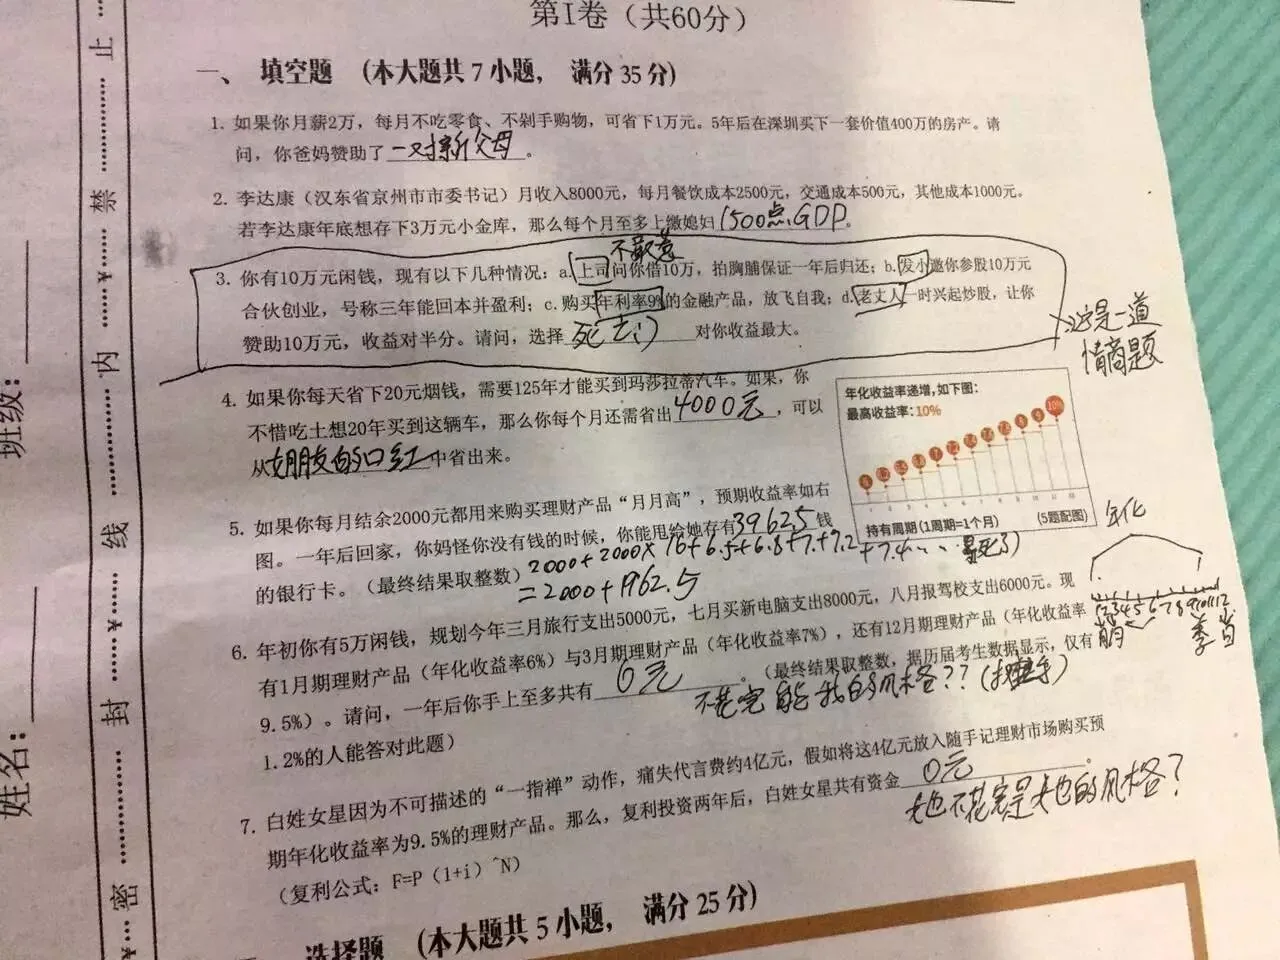 第I卷（共60分）
一、 填空题 （本大题共7小题， 满分35分）
1. 如果你月薪2万，每月不吃零食、不剁手购物，可省下1万元。5年后在深圳买下一套价值400万的房产。请
问，你爸妈赞助了 一对新父母 。
2. 李达康（汉东省京州市市委书记）月收入8000元，每月餐饮成本2500元，交通成本500元，其他成本1000元。
若李达康年底想存下3万元小金库，那么每个月至多上缴媳妇 1500点GDP。
不敢惹
3. 你有10万元闲钱，现有以下几种情况：a. 上司问你借10万，拍胸脯保证一年后归还；b. 发小邀你参股10万元
合伙创业，号称三年能回本并盈利；c. 购买年利率9%的金融产品，放飞自我；d. 老丈人一时兴起炒股，让你
赞助10万元，收益对半分。请问，选择 死亡:) 对你收益最大。
这是一道
情商题
4. 如果你每天省下20元烟钱，需要125年才能买到玛莎拉蒂汽车。如果，你
不惜吃土想20年买到这辆车，那么你每个月还需省出 4000元 ，可以
从 女朋友的口红 中省出来。
年化收益率递增，如下图：
最高收益率：10%
持有周期（1周期=1个月） （5题配图）
5. 如果你每月结余2000元都用来购买理财产品“月月高”，预期收益率如右
图。一年后回家，你妈怪你没有钱的时候，你能甩给她存有 3962.5 钱
的银行卡。（最终结果取整数）
2000+2000×16+6.5+6.8+7+7.2+7.4……
=2000+1962.5
年化
6. 年初你有5万闲钱，规划今年三月旅行支出5000元，七月买新电脑支出8000元，八月报驾校支出6000元。现
有1月期理财产品（年化收益率6%）与3月期理财产品（年化收益率7%），还有12月期理财产品（年化收益率
9.5%）。请问，一年后你手上至多共有 0元 。（最终结果取整数，据历届考生数据显示，仅有
1.2%的人能答对此题）
不花完能我的风格？？
7. 白姓女星因为不可描述的“一指禅”动作，痛失代言费约4亿元，假如将这4亿元放入随手记理财市场购买预
期年化收益率为9.5%的理财产品。那么，复利投资两年后，白姓女星共有资金 0元 。
（复利公式：F=P（1+i）^N）
她不花完是她的风格？
选择题 （本大题共5小题， 满分25分）
姓名：
班级：
密 封 线 内 禁 止